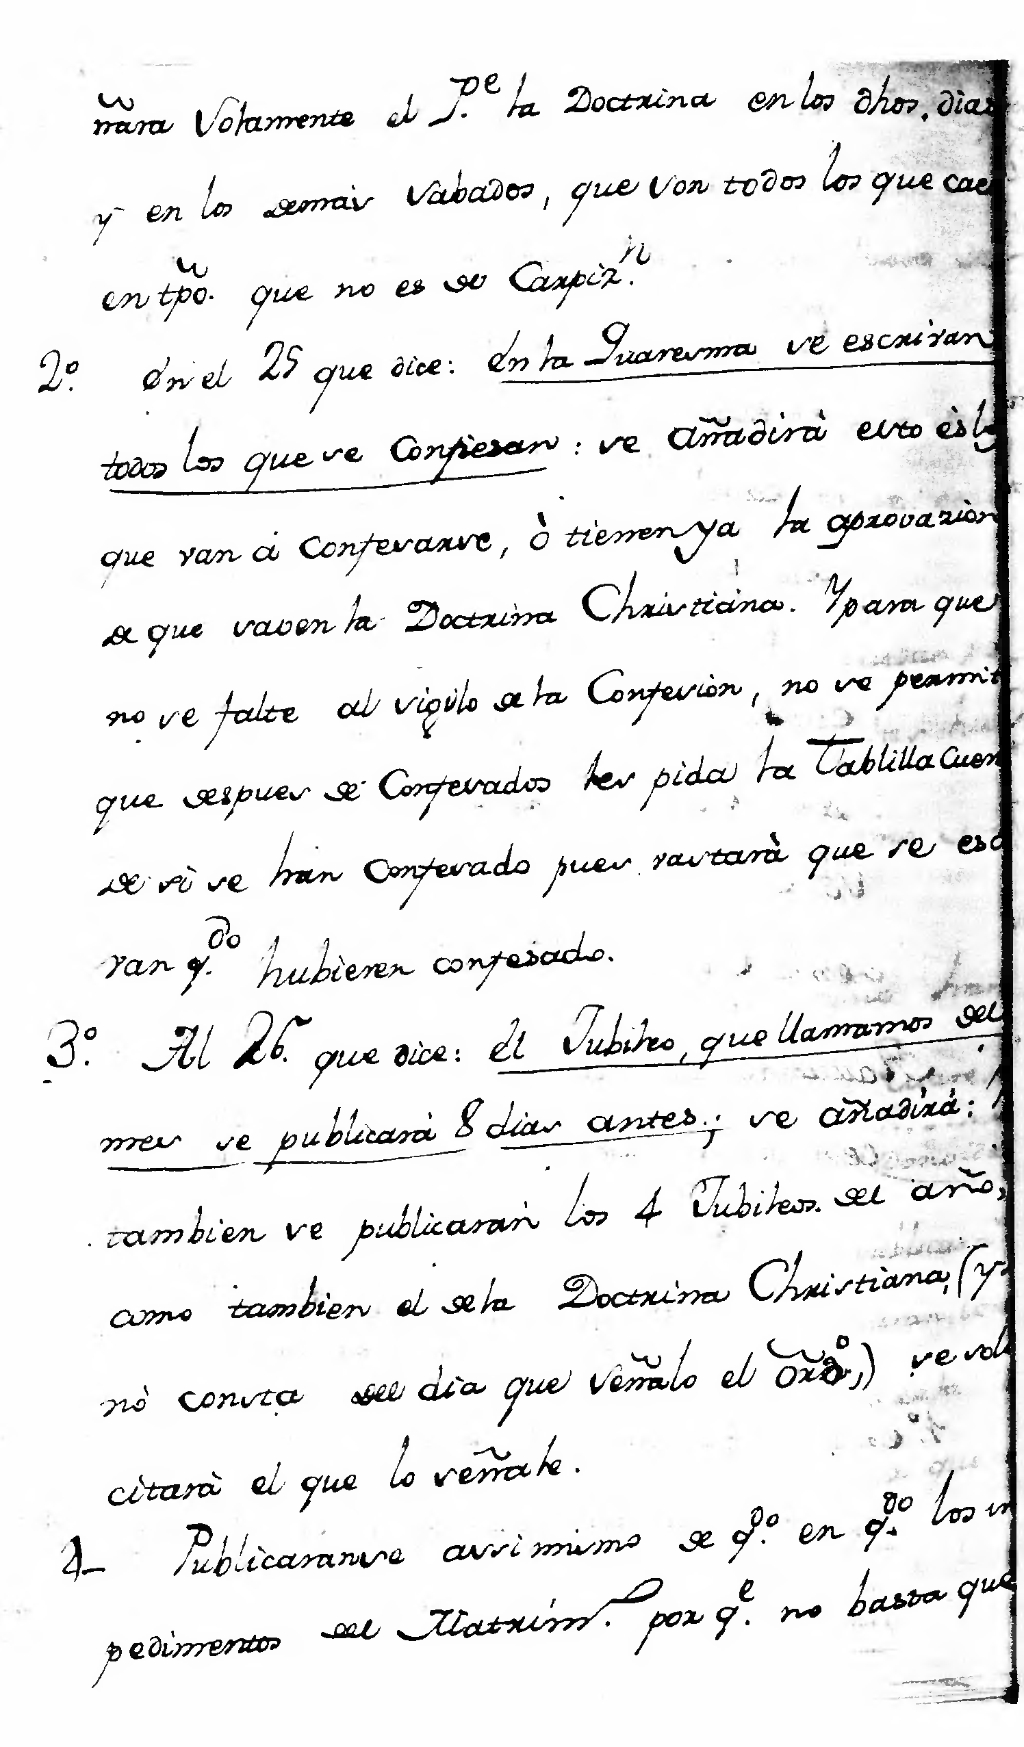 ñara Solamente el P.e la Doctrina en los dhos. dias
y en los demàs Sabados, que son todos los que cae
en tp̃o. que no es de Carpiz.n
2.o En el 25 que dice: En la Quaresma se escriviran
todos los que se Confiesan: se añadirà esto ès lo
que van à Confesarse, ò tienen ya la aprovazion
de que saven la Doctrina Christiana. Y para que
no se falte al sigilo de la Confesiòn, no se permit
que despues de Confesados les pida la Tablilla Cuen
de si se han Confesado pues vastarà que se esc
van q.do hubieren confesado.
3.o Al 26. que dice: el Jubileo, que llamamos del
mes se publicarà 8 dias antes; se añadirà:
tambien se publicaran los 4 Jubileos del año,
como tambien el de la Doctrina Christiana, (y
nò consta del dia que señalo el Or̃d.o,) se soli
citarà el que lo señale.
4_ Publicaranse assi mismo de q.do en q.do los im
pedimentos del Matrim.o por q.e no basta que